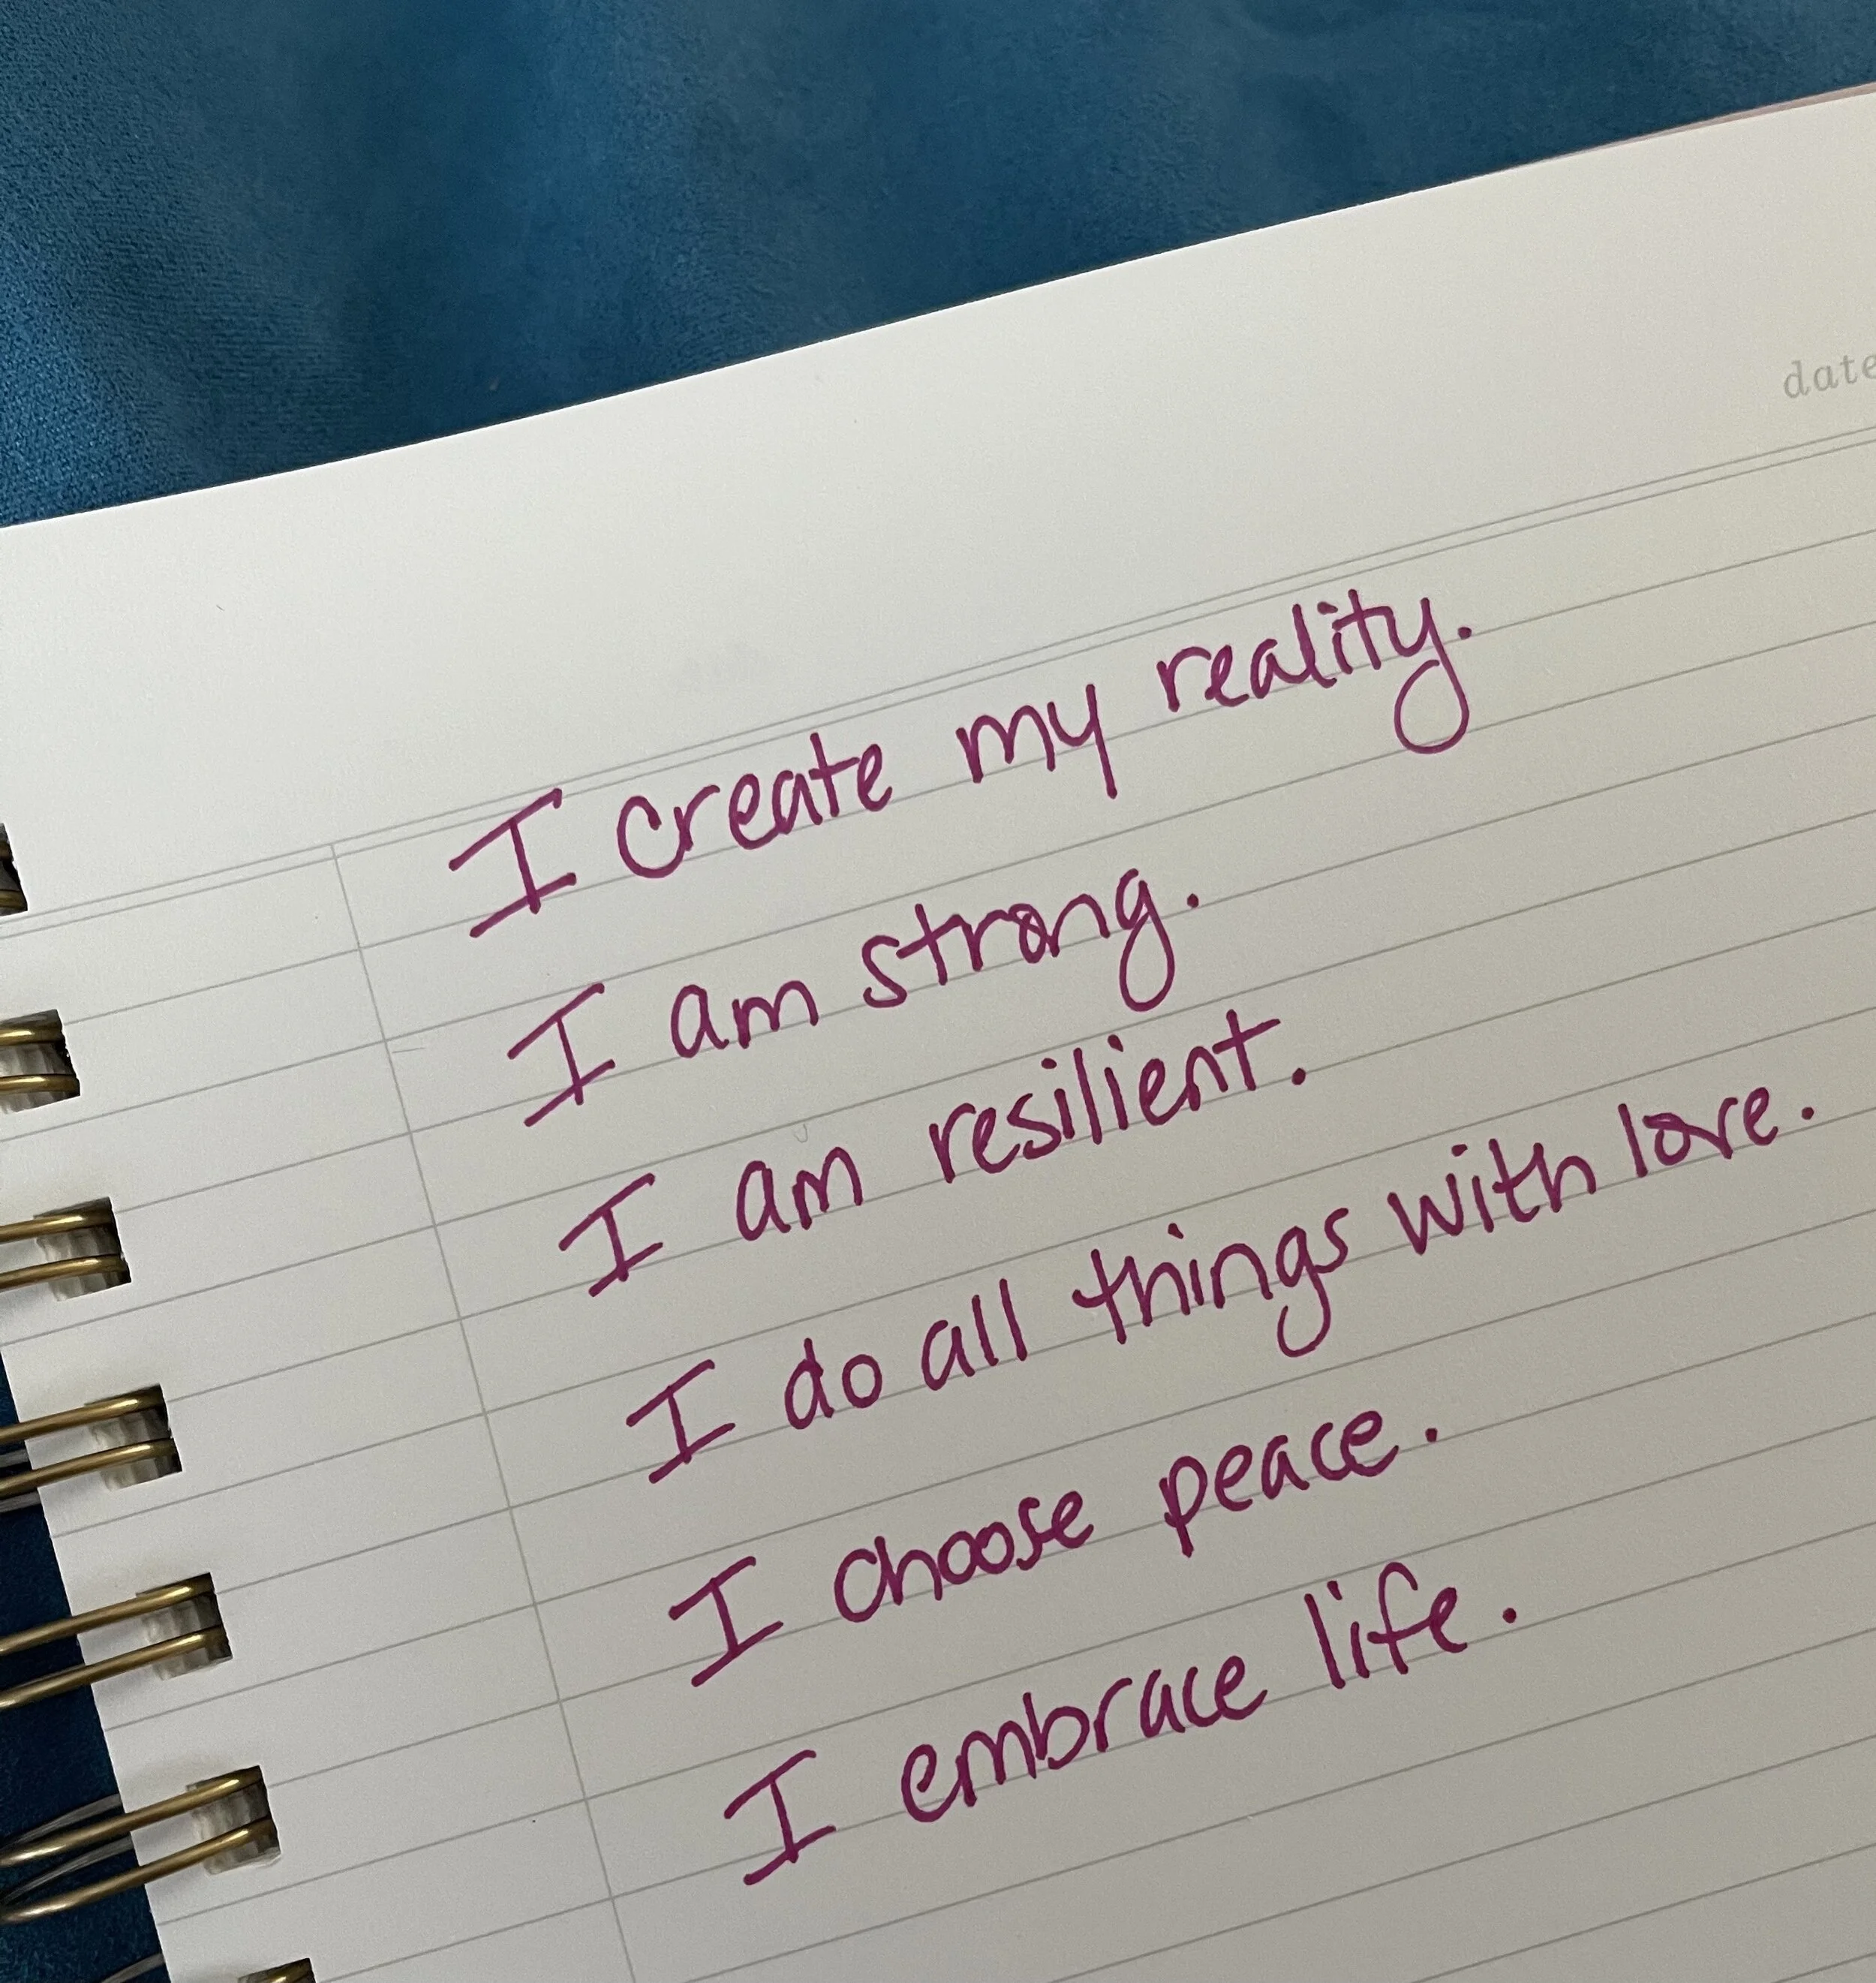 date
I create my reality.
I am strong.
I am resilient.
I do all things with love.
I choose peace.
I embrace life.